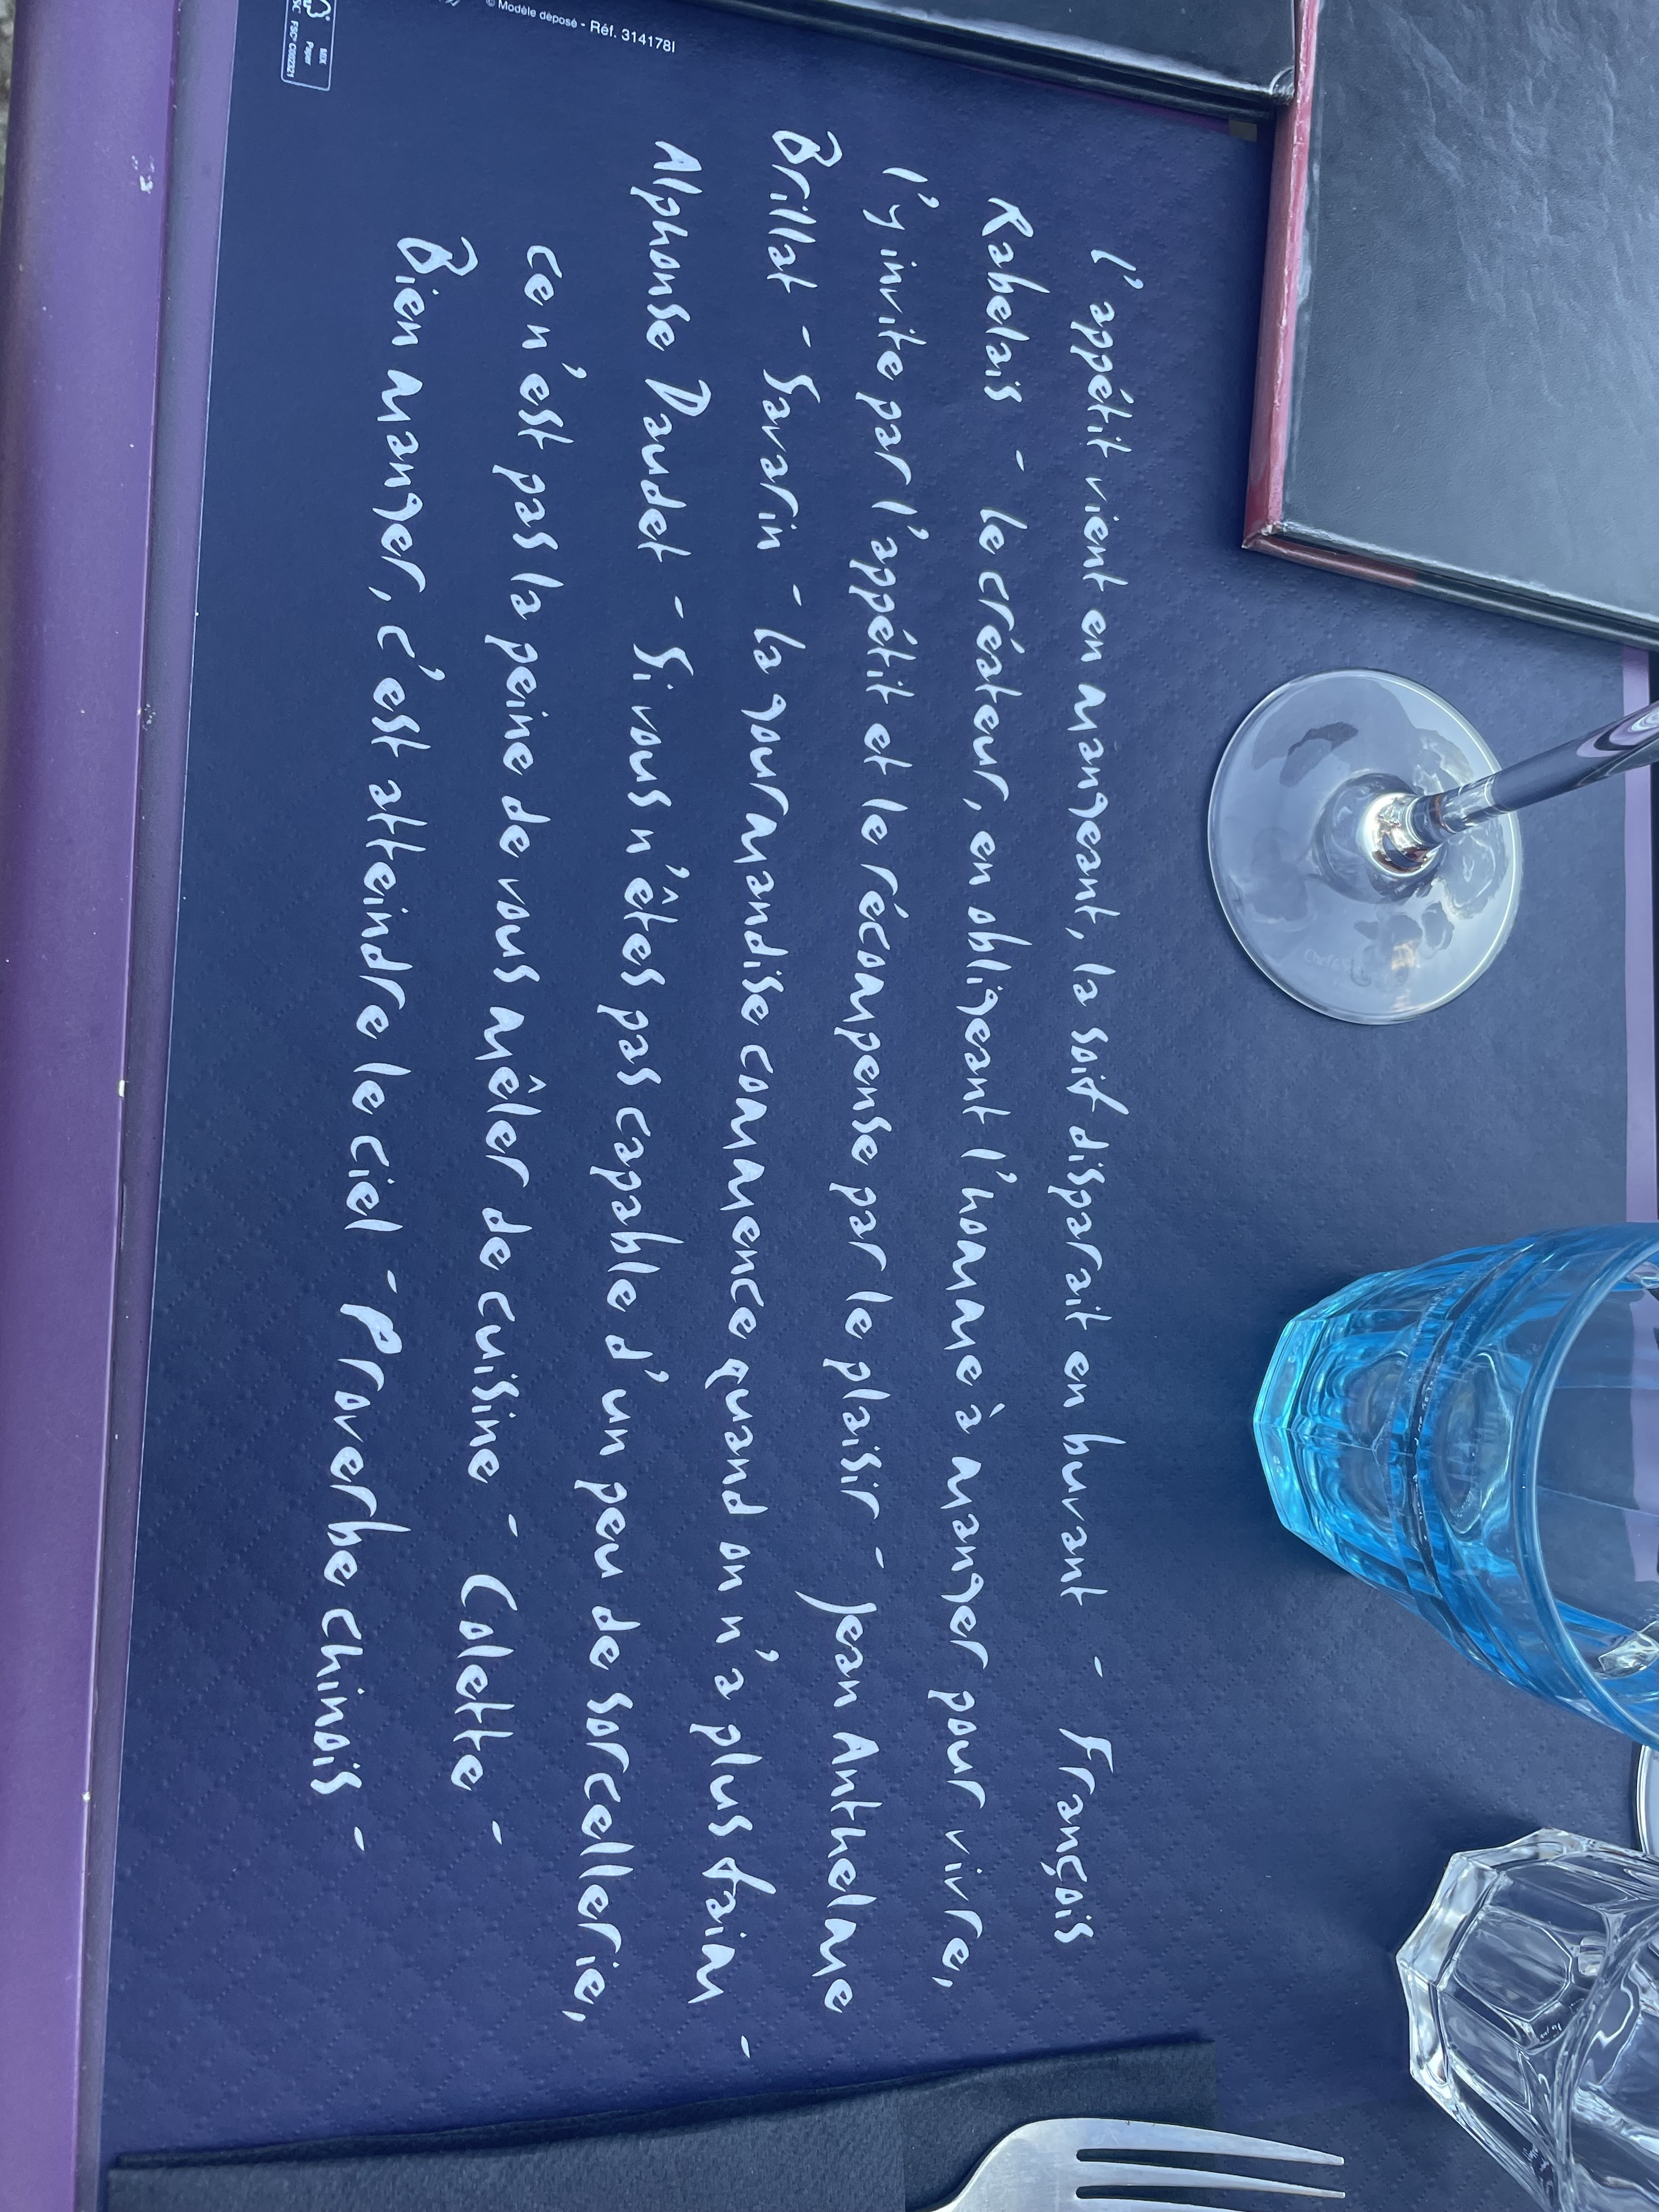 L'appétit vient en mangeant, la soif disparait en buvant - François
Rabelais - Le créateur, en obligeant l'homme à manger pour vivre,
l'y invite par l'appétit et le récompense par le plaisir - Jean Anthelme
Brillat - Savarin - La gourmandise commence quand on n'a plus faim -
Alphonse Daudet - Si vous n'êtes pas capable d'un peu de sorcellerie,
ce n'est pas la peine de vous mêler de cuisine - Colette -
Bien manger, c'est atteindre le ciel - Proverbe chinois -
© Modèle déposé - Réf. 314178I
MIX
Paper